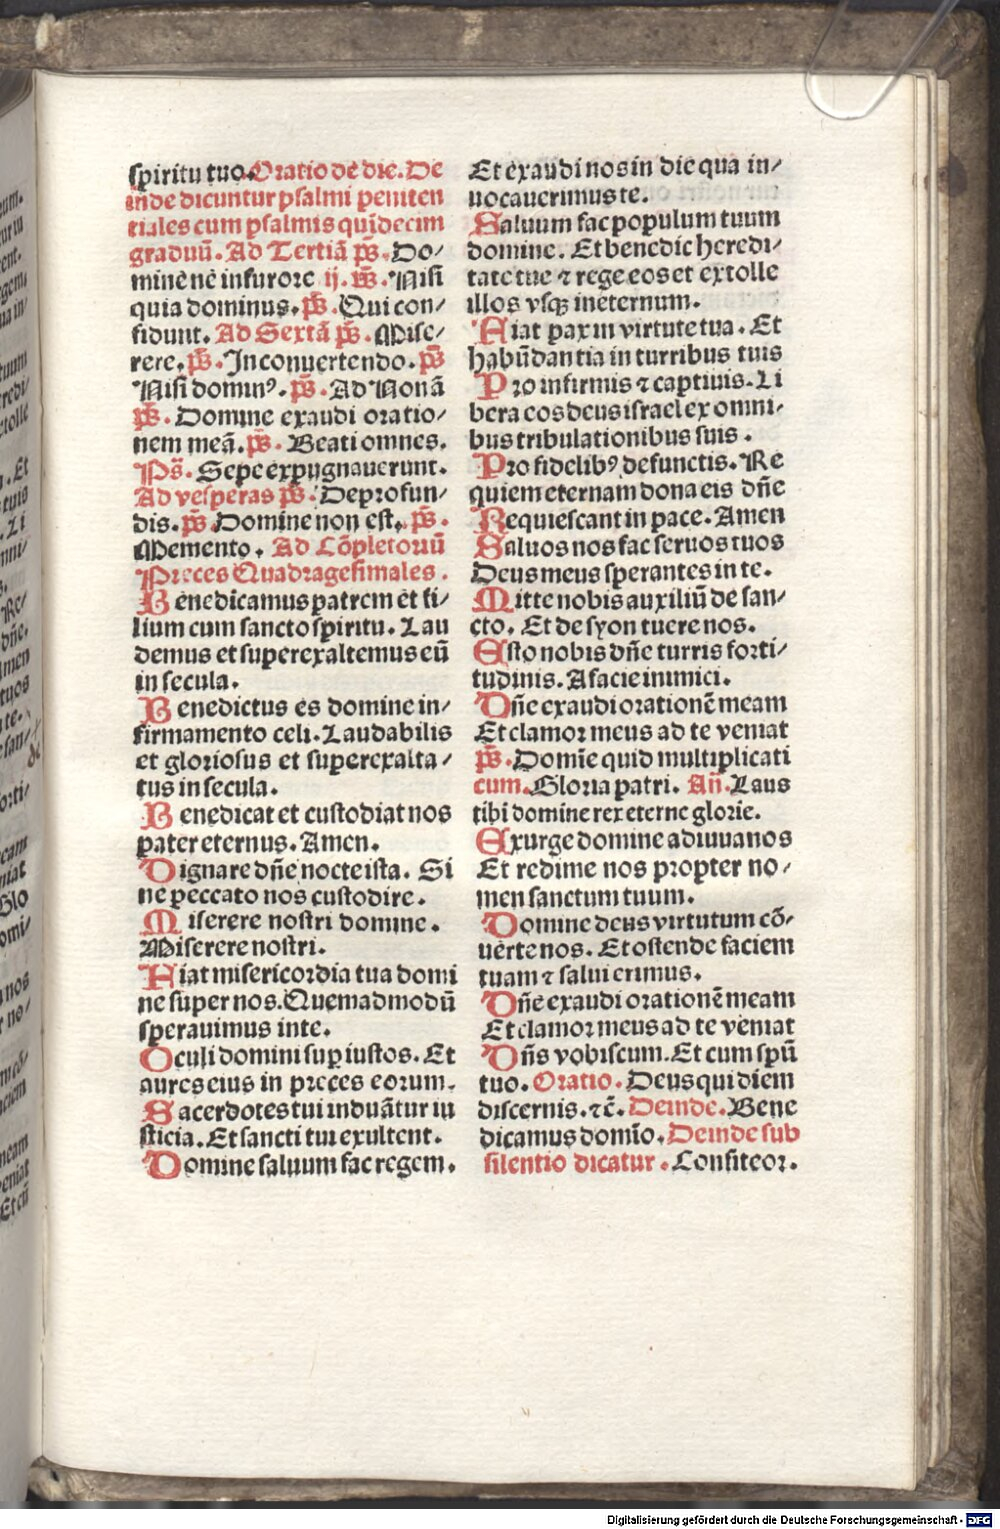 spiritu tuo. Oratio de die. De
inde dicuntur psalmi peniten
tiales cum psalmis quīdecim
graduū. Ad Tertiā ps̄. Do/
mine ne in furore ij. ps̄. Nisi
quia dominus. ps̄. Qui con/
fidunt. Ad Sextā ps̄. Mise/
rere. ps̄. In conuertendo. ps̄
Nisi dominꝰ. ps̄. Ad Nonā
ps̄. Domine exaudi oratio/
nem meā. ps̄. Beati omnes.
Ps̄. Sepe expugnauerunt.
Ad vesperas ps̄. De profun/
dis. ps̄. Domine non est. ps̄.
Memento. Ad Cōpletoriū
Preces Quadragesimales.
Benedicamus patrem et fi/
lium cum sancto spiritu. Lau
demus et superexaltemus eū
in secula.
Benedictus es domine in/
firmamento celi. Laudabilis
et gloriosus et superexalta/
tus in secula.
Benedicat et custodiat nos
pater eternus. Amen.
Dignare dn̄e nocte ista. Si
ne peccato nos custodire.
Miserere nostri domine.
Miserere nostri.
Fiat misericordia tua domi
ne super nos. Quemadmodū
sperauimus in te.
Oculi domini suꝑ iustos. Et
aures eius in preces eorum.
Sacerdotes tui induātur iu
sticia. Et sancti tui exultent.
Domine saluum fac regem.
Et exaudi nos in die qua in/
uocauerimus te.
Saluum fac populum tuum
domine. Et benedic heredi/
tate tue ⁊ rege eos et extolle
illos vsqꝫ in eternum.
Fiat pax in virtute tua. Et
habūdantia in turribus tuis
Pro infirmis ⁊ captiuis. Li
bera eos deus israel ex omni/
bus tribulationibus suis.
Pro fidelibꝰ defunctis. Re
quiem eternam dona eis dn̄e
Requiescant in pace. Amen
Saluos nos fac seruos tuos
Deus meus sperantes in te.
Mitte nobis auxiliū de san/
cto. Et de syon tuere nos.
Esto nobis dn̄e turris forti/
tudinis. A facie inimici.
Dn̄e exaudi orationē meam
Et clamor meus ad te veniat
ps̄. Domīe quid multiplicati
cum. Gloria patri. An̄. Laus
tibi domine rex eterne glorie.
Exurge domine adiuua nos
Et redime nos propter no/
men sanctum tuum.
Domine deus virtutum cō/
uerte nos. Et ostende faciem
tuam ⁊ salui erimus.
Dn̄e exaudi orationē meam
Et clamor meus ad te veniat
Dn̄s vobiscum. Et cum spū
tuo. Oratio. Deus qui diem
discernis. ⁊c̄. Deinde. Bene
dicamus domīo. Deinde sub
silentio dicatur. Confiteor.
Digitalisierung gefördert durch die Deutsche Forschungsgemeinschaft - DFG